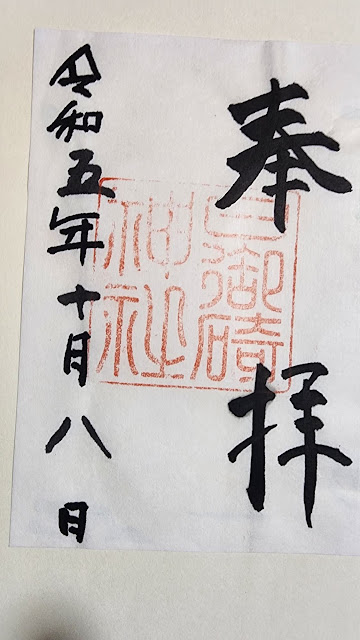 奉拝
日御碕
神社
令和五年十月八日